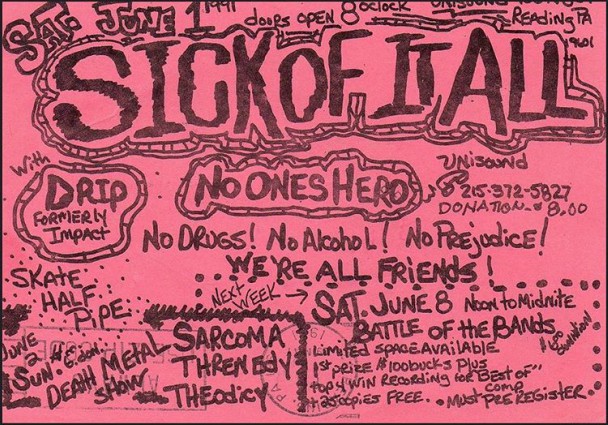 SAT. JUNE 1 1991 DOORS OPEN 8 OCLOCK UNISOUND
READING PA
19601
SICK OF IT ALL
WITH
DRIP
FORMERLY
IMPACT
NO ONES HERO
UNISOUND
215-372-5827
DONATION-$8.00
NO DRUGS! NO ALCOHOL! NO PREJUDICE!
WE'RE ALL FRIENDS!
SKATE
HALF
PIPE
NEXT WEEK → SAT. JUNE 8 NOON TO MIDNITE
BATTLE OF THE BANDS
DONATION!
LIMITED SPACE AVAILABLE
1ST PRIZE $100BUCKS PLUS
TOP 4 WIN RECORDING FOR "BEST OF"
COMP
+ 25 COPIES FREE. • MUST PRE REGISTER.
JUNE
2
SUN.
DEATH METAL
SHOW
SARCOMA
THRENEDY
THEODICY